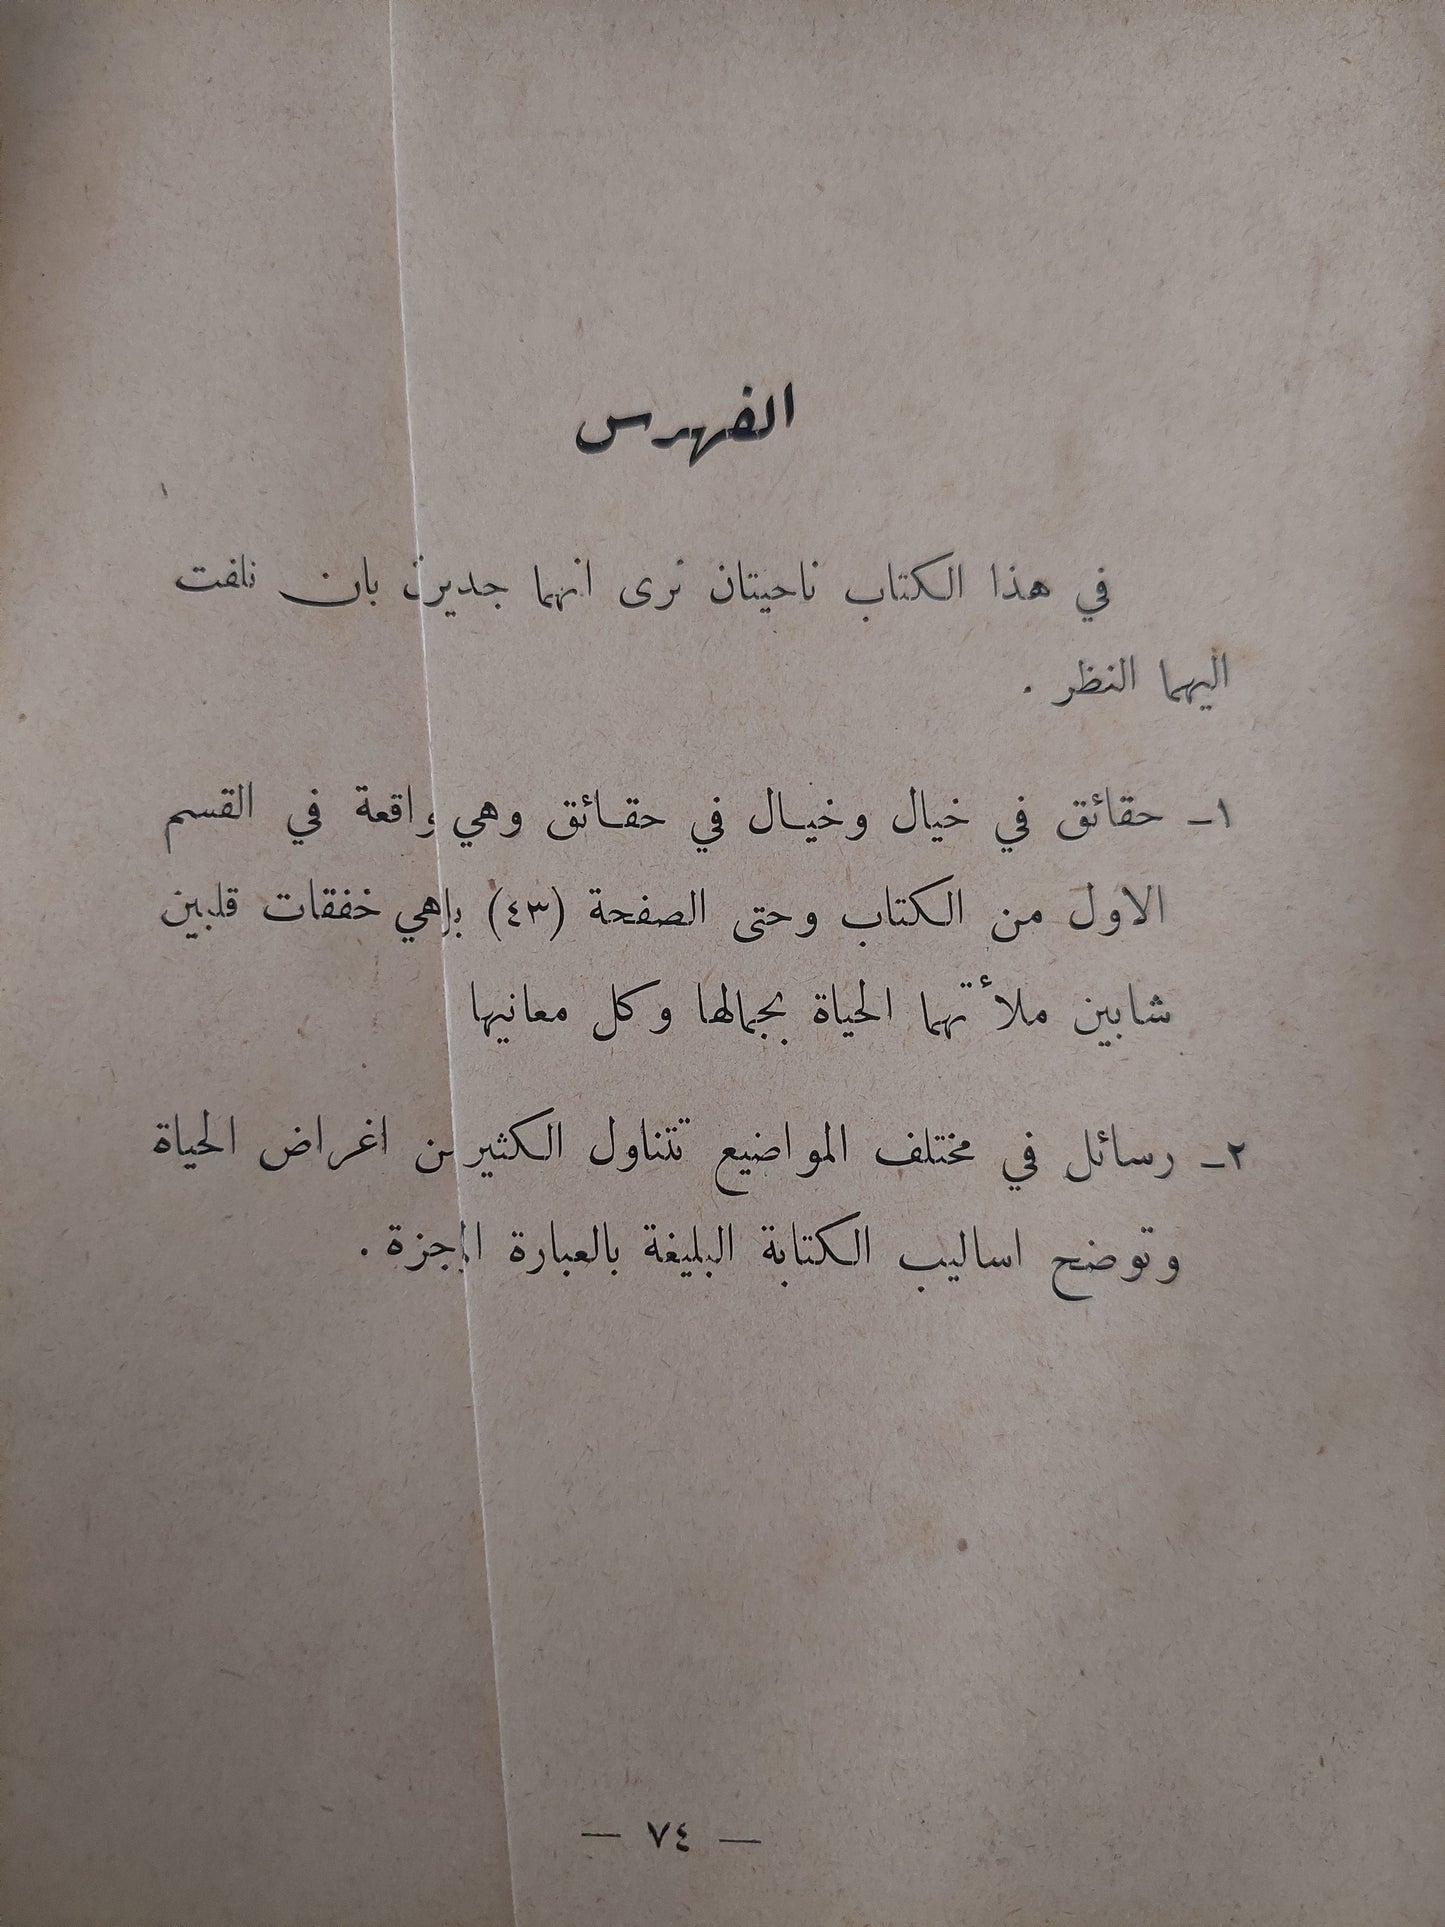 الفهرس
في هذا الكتاب ناحيتان نرى انهما جديرة بان نلفت
اليهما النظر .
١ـ حقائق في خيال وخيـال في حقـائق وهي واقعة في القسم
الاول من الكتاب وحتى الصفحة (٤٣) هي خفقات قلبين
شابين ملأتهما الحياة بجمالها وكل معانيها
٢ـ رسائل في مختلف المواضيع تتناول الكثير من اغراض الحياة
وتوضح اساليب الكتابة البليغة بالعبارة الموجزة .
— ٧٤ —